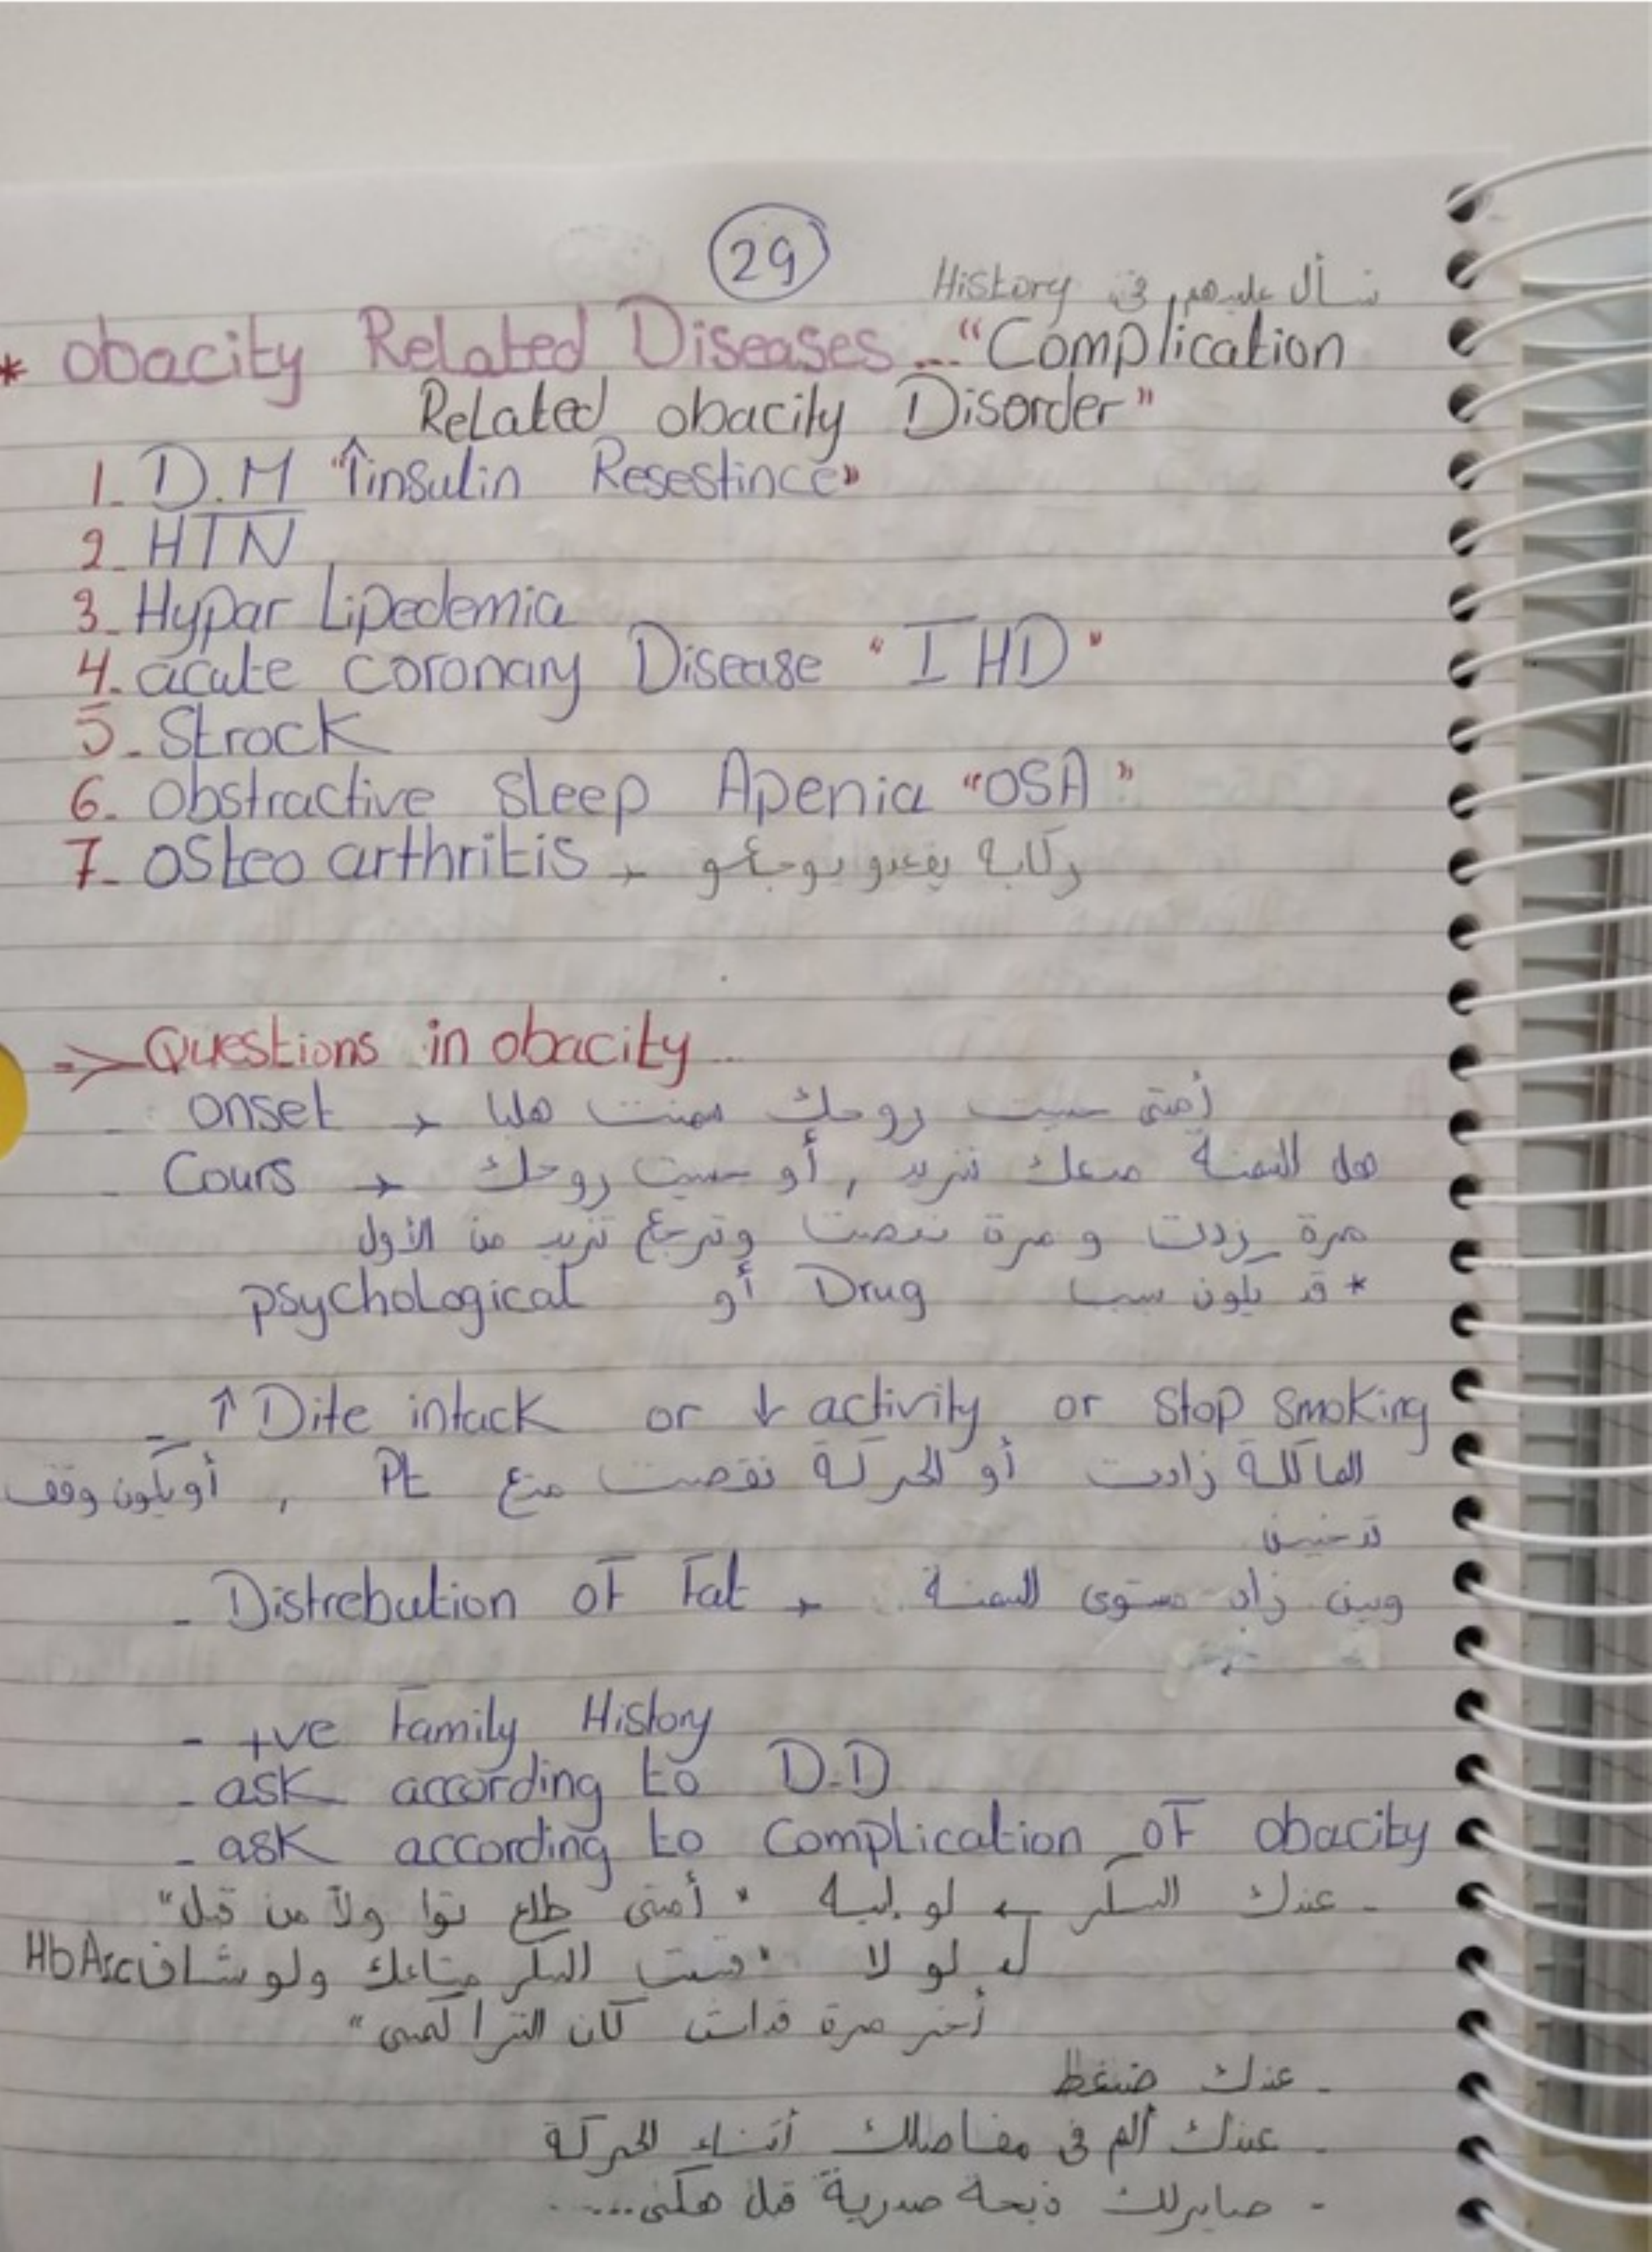 29
نسأل عليهم في History
* obacity Related Diseases... "Complication
Related obacity Disorder"
1. D.M "↑insulin Resestince"
2. HTN
3. Hypar Lipedemia
4. acute coronary Disease "IHD"
5. Strock
6. obstractive sleep Apenia "OSA"
7. osteo arthritis → ركابه يقعدو يوجعو
=> Questions in obacity...
- onset → أمتى حسيت روحك سمنت هلبا
- Cours → هل السمنة معك تزيد , أو حسيت روحك
مرة زدت و مرة نقصت وترجع تزيد من الأول
* قد يكون سببا Drug أو psychological
- ↑ Dite intack or ↓ activity or stop smoking
الماكلة زادت أو الحركة نقصت متع Pt , أو يكون وقف
تدخين
- Distrebution of Fat → وين زاد مستوى السمنة
- +ve Family History
- ask according to D.D
- ask according to Complication of obacity
- عندك السكر ← لو ايه "أمتى طلع توا ولا من قبل"
↳ لو لا "قست السكر متاعك ولو شاف HbA1c
أخر مرة قداش كان التراكمى"
- عندك ضغط
- عندك ألم في مفاصلك أثناء الحركة
- صايرلك ذبحة صدرية قبل هكي.....